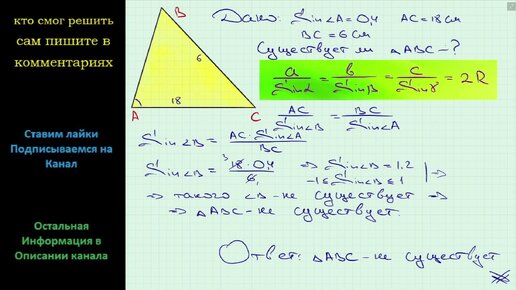 кто смог решить
сам пишите в
комментариях
Ставим лайки
Подписываемся на
Канал
Остальная
Информация в
Описании канала
B
6
18
A
C
Дано: Sin∠A = 0,4 AC = 18 см
BC = 6 см
Существует ли △ABC - ?
a/Sinα = b/Sinβ = c/Sinγ = 2R
AC/Sin∠B = BC/Sin∠A
Sin∠B = AC·Sin∠A/BC
Sin∠B = 18·0,4/6 ⇒ Sin∠B = 1,2
3
1
-1≤Sin∠B≤1 ⇒
⇒ такого ∠B - не существует ⇒
⇒ △ABC - не существует.
Ответ: △ABC - не существует